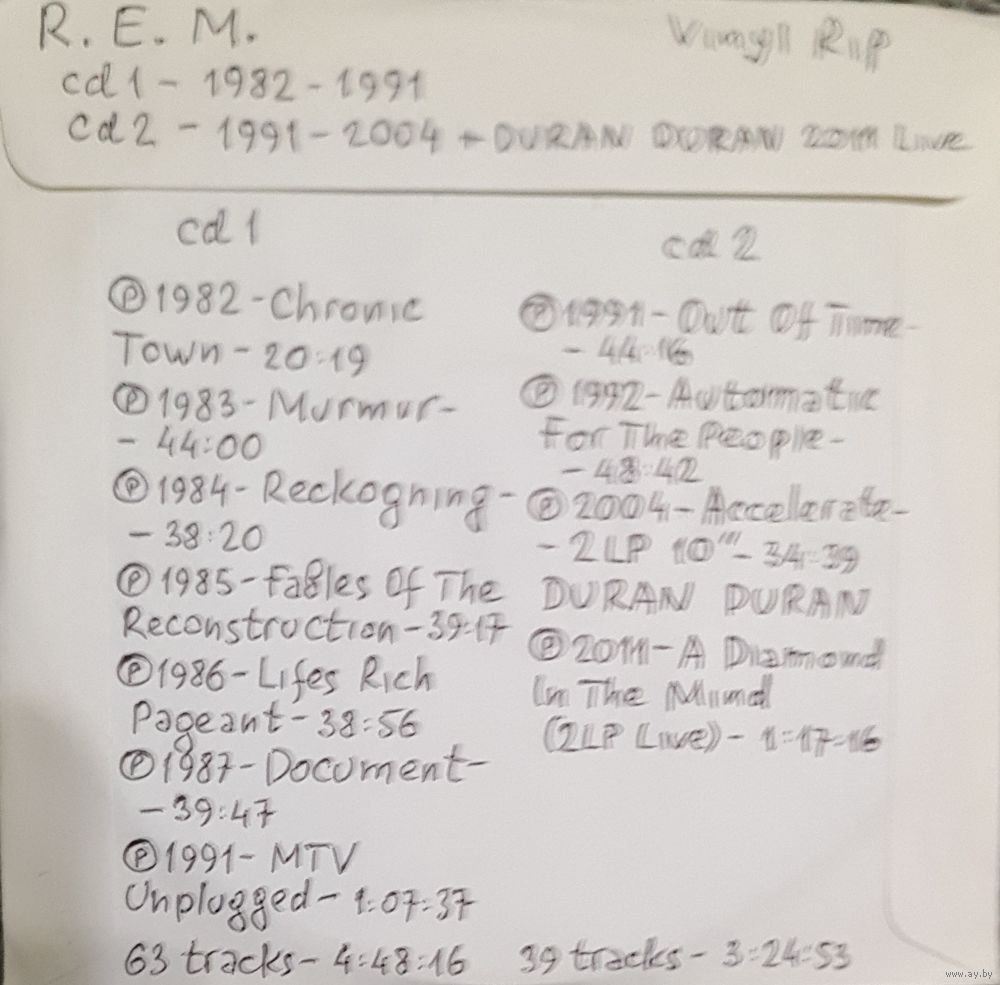 R. E. M.
Vinyl Rip
cd 1 - 1982 - 1991
cd 2 - 1991 - 2004 + DURAN DURAN 2011 Live
cd 1
Ⓟ1982 - Chronic
Town - 20:19
Ⓟ1983 - Murmur -
- 44:00
Ⓟ1984 - Reckogning -
- 38:20
Ⓟ1985 - Fables Of The
Reconstruction - 39:17
Ⓟ1986 - Lifes Rich
Pageant - 38:56
Ⓟ1987 - Document -
- 39:47
Ⓟ1991 - MTV
Unplugged - 1:07:37
63 tracks - 4:48:16
cd 2
Ⓟ1991 - Out Of Time -
- 44:16
Ⓟ1992 - Automatic
For The People -
- 48:42
Ⓟ2004 - Accelerate -
- 2LP 10''' - 34:39
DURAN DURAN
Ⓟ2011 - A Diamond
In The Mind
(2LP Live) - 1:17:16
39 tracks - 3:24:53
www.ay.by